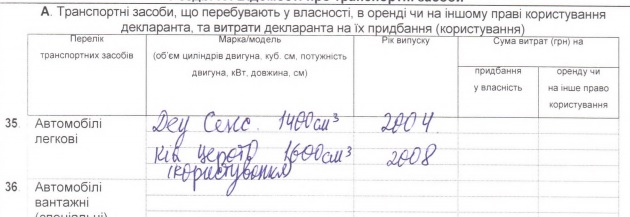 А. Транспортні засоби, що перебувають у власності, в оренді чи на іншому праві користування
декларанта, та витрати декларанта на їх придбання (користування)
Перелік
транспортних засобів
Марка/модель
(об'єм циліндрів двигуна, куб. см, потужність
двигуна, кВт, довжина, см)
Рік випуску
Сума витрат (грн) на
придбання
у власність
оренду чи
на інше право
користування
35. Автомобілі
легкові
Деу Сенс 1400 см³ 2004
Кіа церато 1600 см³ 2008
(користування
36. Автомобілі
вантажні